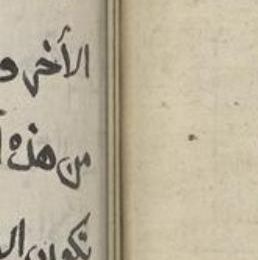 الأخر و
من هذه
تكون ال